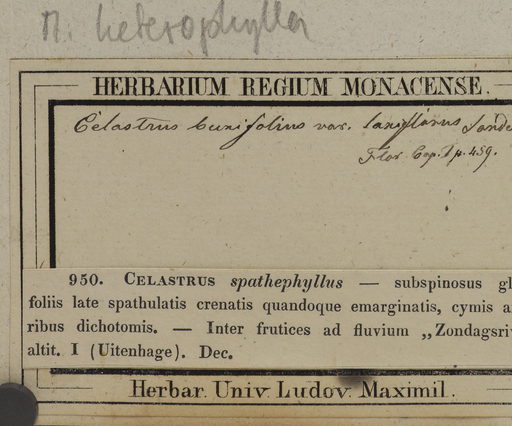 M. heterophylla
HERBARIUM REGIUM MONACENSE.
Celastrus buxifolius var. laxiflorus Sonde
Flor. Cap. I p. 459.
950. CELASTRUS spathephyllus — subspinosus gl
foliis late spathulatis crenatis quandoque emarginatis, cymis a
ribus dichotomis. — Inter frutices ad fluvium „Zondagsriv
altit. I (Uitenhage). Dec.
Herbar. Univ. Ludov. Maximil.